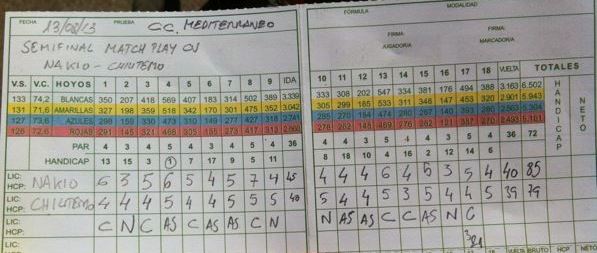 FECHA 13/08/13 PRUEBA C.C. MEDITERRANEO
SEMIFINAL MATCH PLAY ON
NAKIO - CHIUTEMO
V.S. V.C. HOYOS 1 2 3 4 5 6 7 8 9 IDA
133 74,2 BLANCAS 350 207 418 569 407 183 314 502 389 3.339
131 71,6 AMARILLAS 327 198 359 518 342 170 301 475 352 3.042
127 73,6 AZULES 298 159 330 473 310 149 277 427 318 2.741
126 72,6 ROJAS 291 145 321 468 305 285 273 417 313
PAR 4 3 4 5 4 3 4 5 4 36
HANDICAP 13 15 3 1 7 17 9 5 11
LIC: HCP: NAKIO 6 3 5 6 5 4 5 7 4 45
LIC: HCP: CHIUTEMO 4 4 4 5 4 4 5 5 5 40
C N C AS C AS AS C N
LIC:
HCP:
LIC:
FÓRMULA MODALIDAD
FIRMA JUGADOR/A
FIRMA MARCADOR/A
10 11 12 13 14 15 16 17 18 VUELTA TOTALES
333 308 202 547 334 381 176 494 388 3.163 6.502
305 299 185 533 311 346 147 453 320 2.901 5.943
285 270 184 474 280 267 140 393 5.304
276 262 145 469 276 262 131 387 270 2.493 5.101
HANDICAP
NETO
4 4 3 5 4 4 3 5 4 36 72
8 18 10 4 16 2 12 14 6
4 4 4 6 4 5 3 5 4 40 85
5 4 4 5 3 5 4 4 5 39 79
N AS AS C C AS N C
VUELTA BRUTO HCP NETO